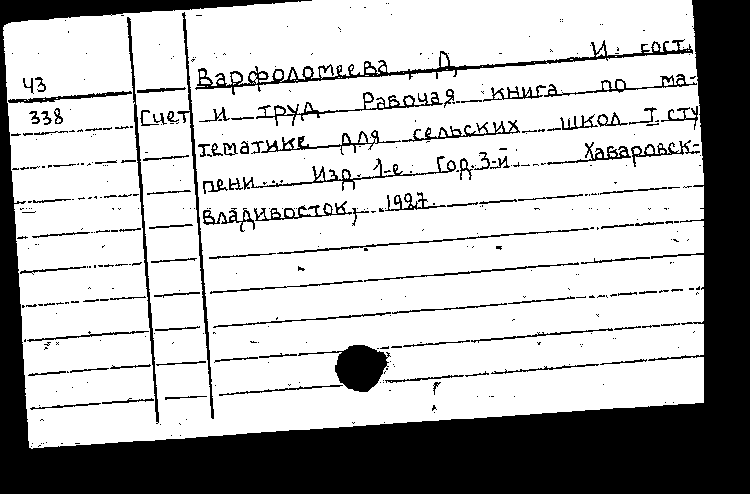 43
338
Варфоломеева, Д. И. сост.
Счет и труд Рабочая книга по ма-
тематике для сельских школ I сту
пени... Изд. 1-е. Год 3-й. Хабаровск-
Владивосток, 1927.